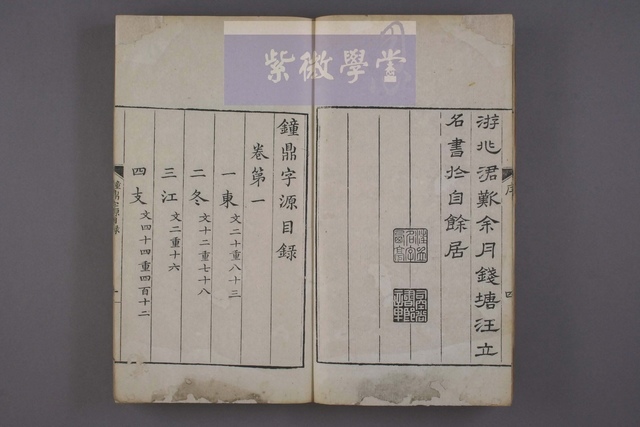 紫微學堂
游兆涒歎余月錢塘汪立
名書於自餘居
鐘鼎字源目錄
卷第一
一東 文二十重八十三
二冬 文十二重七十八
三江 文二重十六
四支 文四十四重四百十二